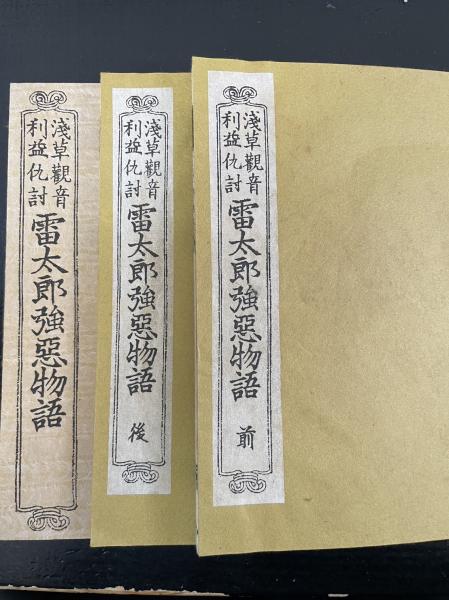 淺草觀音
利益仇討
雷太郎強惡物語
前
淺草觀音
利益仇討
雷太郎強惡物語
後
淺草觀音
利益仇討
雷太郎強惡物語